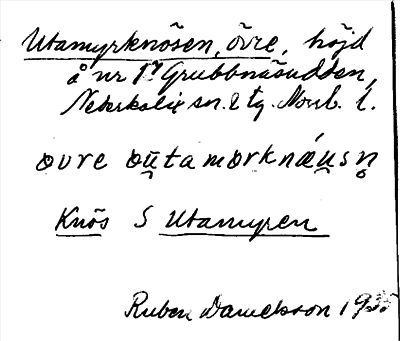 Utamyrknösen, övre, höjd
å nr 17 Grubbnäsudden,
Nederkalix sn. & tg. Norrb. l.
ovre ou̯tamorknǽu̯sn̥
Knös S Utamyren
Ruben Danielsson 1935